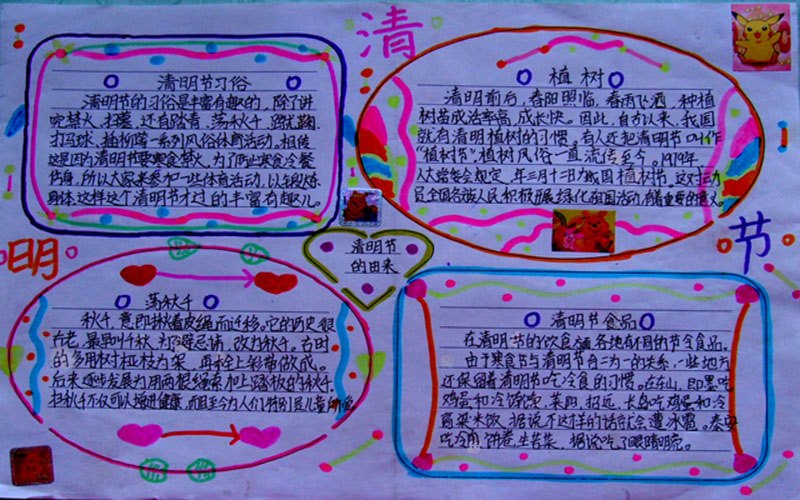 清
清明节习俗
清明节的习俗是丰富有趣的，除了讲
究禁火、扫墓，还有踏青、荡秋千、蹴鞠、
打马球、插柳等一系列风俗体育活动。相传
这是因为清明节要寒食禁火，为了防止寒食冷餐
伤身，所以大家来参加一些体育活动，以锻炼
身体。这样这个清明节才过的丰富有趣儿。
植树
清明前后，春阳照临，春雨飞洒，种植
树苗成活率高，成长快。因此，自古以来，我国
就有清明植树的习惯。有人还把清明节叫作
“植树节”。植树风俗一直流传至今。1979年，
人大常委会规定，每年三月十二日为我国植树节。这对动
员全国各族人民积极开展绿化祖国活动，有着重要的意义。
明
清明节
的由来
节
荡秋千
秋千，意即揪着皮绳而迁移。它的历史很
古老，最早叫千秋，为了避忌讳，改为秋千。古时
的多用树桠枝为架，再栓上彩带做成。
后来逐步发展为用两根绳索加上踏板的秋千。
打秋千不仅可以增进健康，而且至今为人们特别是儿童所爱
清明节食品
在清明节的饮食方面，各地有不同的节令食品。
由于寒食节与清明节合二为一的关系，一些地方
还保留着清明节吃冷食的习惯。在东山，即墨吃
鸡蛋和冷饽饽，莱阳、招远、长岛吃鸡蛋和冷
高粱米饭，据说不这样的话就会遭冰雹。泰安
吃冷煎饼卷生苦菜，据说吃了眼睛明亮。